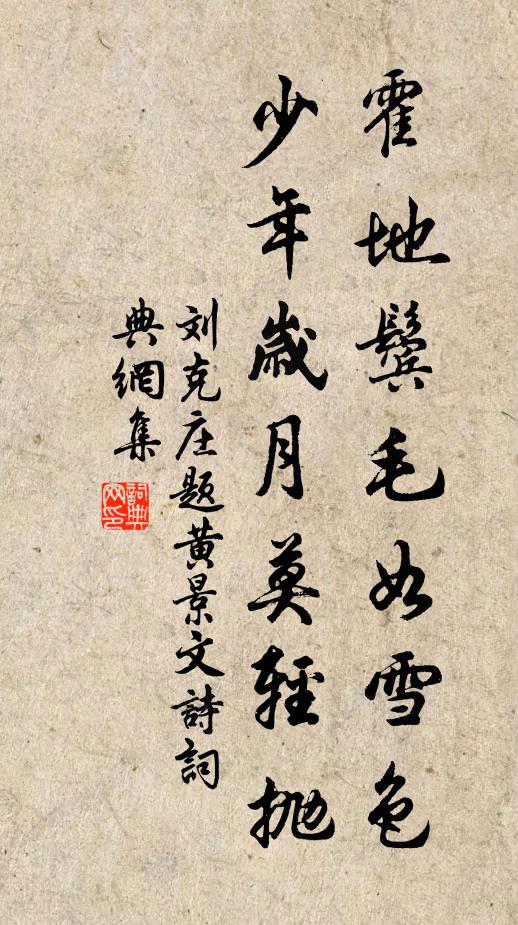 霍地鬓毛如雪色
少年歲月莫輕抛
刘克庄题黄景文詩詞
典網集
詞典网印